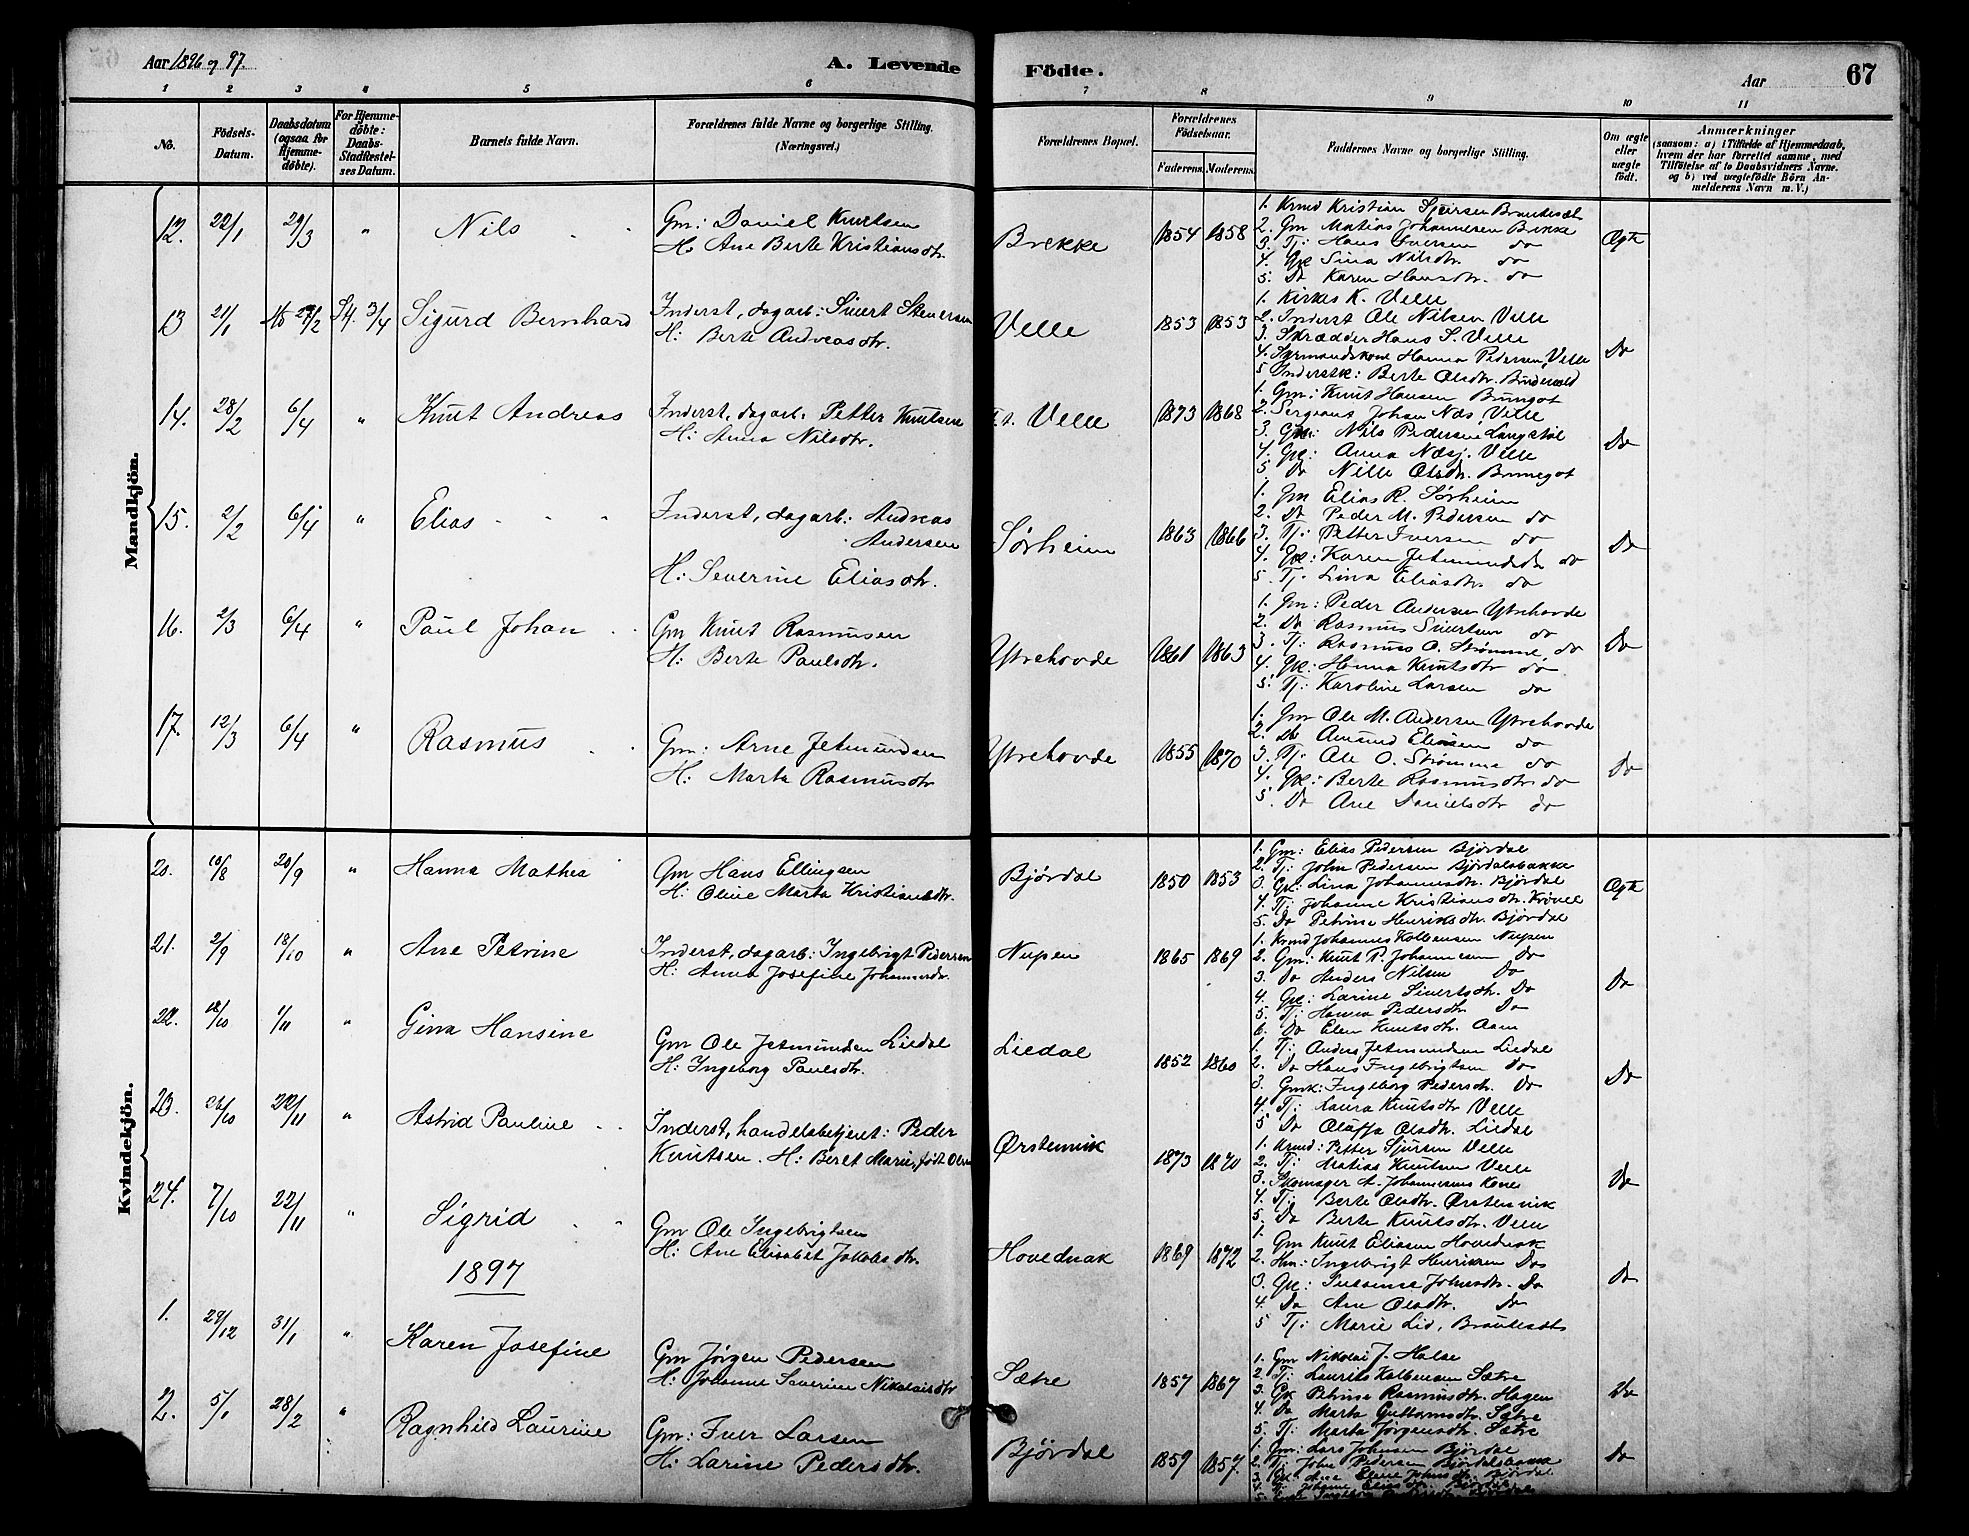 Aar 1896 og 97.
A. Levende Födte.
Aar 67
1 2 3 4 5 6 7 8 9 10 11
No.
Födsels-Datum.
Daabsdatum (ogsaa for Hjemmedöbte).
For Hjemmedöbte: Daabs-Stadfæstelses Datum.
Barnets fulde Navn.
Forældrenes fulde Navne og borgerlige Stilling. (Næringsvei.)
Forældrenes Bopæl.
Forældrenes Födselsaar.
Faderens. Moderens.
Faddernes Navne og borgerlige Stilling.
Om ægte eller uægte födt.
Anmærkninger
(saasom: a) i Tilfælde af Hjemmedaab,
hvem der har forrettet samme, med
Tilföielse af to Daabsvidners Navne.
og b) ved uægtefödte Börn An-
melderens Navn m. V.)
Mandkjön.
12. 22/1 29/3 " Nils
Gm: Daniel Knutsen
H: Ane Berte Kristiansdtr.
Brekke 1854 1858
1. Krmd Kristian Sjursen
2. Gm Matias Johannesen Brekke
3. Tj: Hans Iversen do
4. Gk Sina Nilsdtr. do
5. Do Karen Hansdtr. do
Ægte
13 21/1 St. 3/4 Sigurd Bernhard
Inderst, dagarb: Sivert Steversen
H: Berte Andreasdtr.
Velle 1853 1853
1. Kirkes K. Velle
2. Inderst Ole Nilsen Velle
3. Skrædder Hans S. Velle
4. Styrmandskone Hanna Pedersen, Velle
5 Inderstk: Berte Olsdtr.
Do
14. 28/2 6/4 " Knut Andreas
Inderst, dagarb. Petter Knutsen
H: Anna Nilsdtr.
Velle 1873 1868
1. Gm: Knut Hansen
2. Sergeant Johan Næs Velle
3. Gm: Nils Pedersen Langstøl
4. Gk: Anna Næs, Velle
5 Do Nille Olsdtr.
Do
15. 2/2 6/4 " Elias
Inderst, dagarb: Andreas
Andersen
H: Severine Eliasdtr.
Sørheim 1863 1866
1. Gm Elias R. Sørheim
2. Do Peder M. Pedersen do
3. Tj: Petter Iversen do
4. Gk: Karen Jetmundsdtr do
5. Tj. Lina Eliasdtr. do
Do
16. 2/3 6/4 " Paul Johan
Gm Knut Rasmusen
H: Berte Paulsdtr.
Ytrehovde 1861 1863
1. Gm: Peder Andersen Ytrehovde
2. Do Rasmus Sivertsen do
3. Tj: Rasmus O. Strømme do
4. Gk: Hanna Knutsdtr do
5. Tj: Karoline Larsen do
Do
17. 12/3 6/4 " Rasmus
Gm: Arne Jetmundsen
H: Marta Rasmusdtr
Ytrehovde 1855 1870
1. Gm Ole M. Andersen Ytrehovde
2. Do Amund Eliasen do
3. Tj: Ole O. Strømme do
4. Gk: Berte Rasmusdtr. do
5. Do Ane Danielsdtr do
Do
Kvindekjön.
20. 10/8 20/9 " Hanna Mathea
Gm Hans Ellingsen
H: Oline Marta Kristiansdtr.
Bjørdal 1850 1853
1. Gm: Elias Pedersen Bjørdal
2. Tj: John Pedersen Bjørdalsbakke
3. Gk: Lina Johannesdtr. Bjørdal
4. Tj: Johanne Kristiansdtr.
5. Do Petrine Henriksdtr. Bjørdal
Ægte
21. 2/9 18/10 " Ane Petrine
Inderst, dagarb: Ingebrigt Pedersen
H: Anna Josefine Johannesdtr.
Nupen 1865 1869
1. Krmd Johannes Kolbensen Nupen
2. Gm: Knut P. Johannesen Do
3. Do Anders Nilsen Do
4. Gk: Larine Sivertsdtr. Do
5. Tj: Hanna Pedersdtr. Do
6. Do Elen Knutsdtr. Aam
Do
22. 18/10 1/11 " Gina Hansine
Gm Ole Jetmundsen Liedal
H: Ingeborg Paulsdtr.
Liedal 1852 1860
1. Tj: Anders Jetmundsen Liedal
2. Do Hans Ingebrigtsen do
3. Gmk: Ingeborg Pedersdtr. Do
4. Tj: Laura Knutsdtr Velle
5 Do Olaffa Olsdtr. Liedal
Do
23. 26/10 22/11 " Astrid Pauline
Inderst, handelsbetjent: Peder
Knutsen. H: Beret Marie, født Olsen
Ørstenvik 1873 1870
1. Krmd: Petter Sjursen Velle
2. Tj: Matias Knutsen Velle
3. Skomager A. Johannesens Kone
4. Tj: Berte Olsdtr. Ørstenvik
5. Do Berte Knutsdtr. Velle
Do
24. 7/10 22/11 " Sigrid
Gm Ole Ingebrigtsen
H: Ane Elisabet Jakobsdtr.
Hovednak 1869 1872
1. Gm Knut Eliasen Hovednak
2. Hm: Ingebrigt Henriksen Do
3. Gk: Johnsdtr. Do
4. Do Ane Olsdtr. Do
5 Tj: Marie Lid,
Do
1897
1. 29/12 31/1 " Karen Josefine
Gm Jörgen Pedersen
H: Johanne Severine Nikolaisdtr
Sætre 1857 1867
1. Gm Nikolai J. Halse
2. Tj: Laurits Kolbensen Sætre
3. Gk Petrine Rasmusdtr. Hagen
4. Do Marta Guttormsdtr. Sætre
5. Tj: Marta Jörgensdtr. Sætre
Do
2. 5/1 28/2 " Ragnhild Laurine
Gm: Iver Larsen
H: Larine Pedersdtr.
Bjørdal 1859 1857.
1. Gm: Lars Johnsen Bjørdal
2. Tj. John Pedersen Bjørdalsbakke
3. Gk: Ane Elene Johnsdtr. Bjørdal
4. Tj. Johanne Eliasdtr. Bjørdal
Do